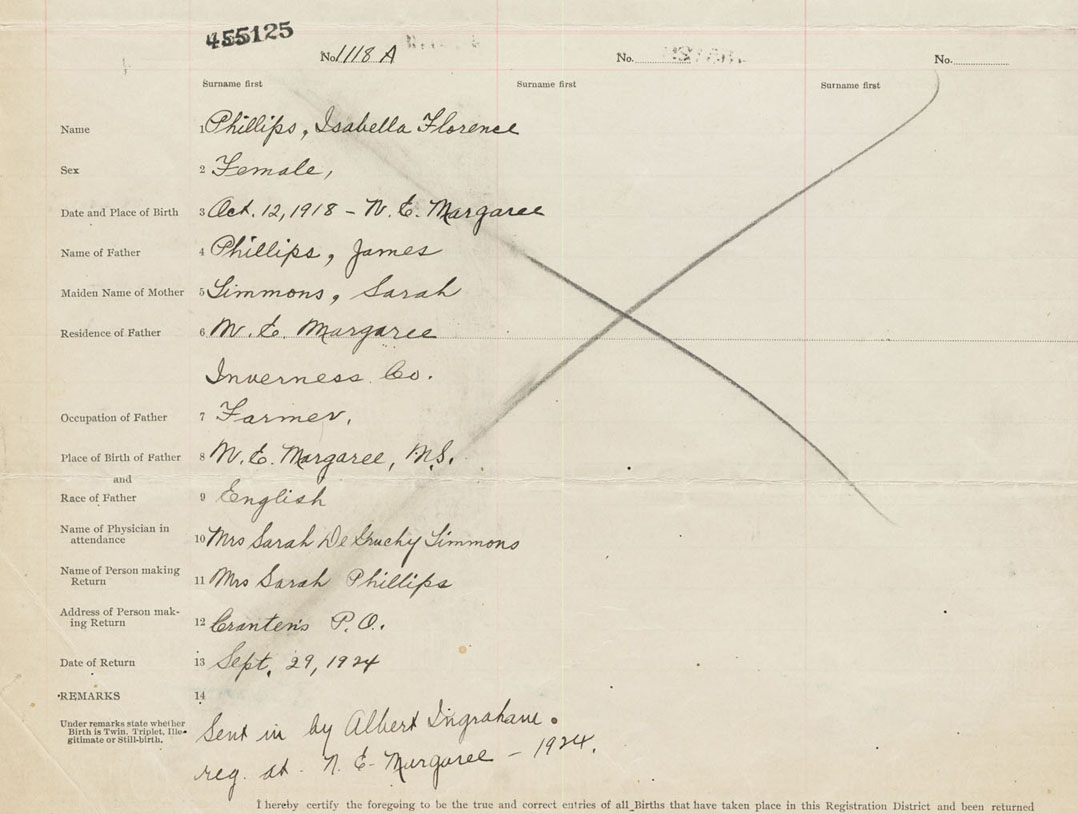 455125
No. 1118 A No. No.
Surname first Surname first Surname first
Name 1 Phillips, Isabella Florence
Sex 2 Female,
Date and Place of Birth 3 Oct. 12, 1918 - N. E. Margaree
Name of Father 4 Phillips, James
Maiden Name of Mother 5 Simmons, Sarah
Residence of Father 6 N. E. Margaree
Inverness Co.
Occupation of Father 7 Farmer,
Place of Birth of Father 8 N. E. Margaree, N.S.
and
Race of Father 9 English
Name of Physician in
attendance 10 Mrs Sarah De Gruchy Simmons
Name of Person making
Return 11 Mrs Sarah Phillips
Address of Person mak-
ing Return 12 Cranten's P.O.
Date of Return 13 Sept. 29, 1924
REMARKS 14
Under remarks state whether
Birth is Twin, Triplet, Ille-
gitimate or Still-birth.
Sent in by Albert Ingraham.
reg. at N. E. Margaree - 1924.
I hereby certify the foregoing to be the true and correct entries of all Births that have taken place in this Registration District and been returned